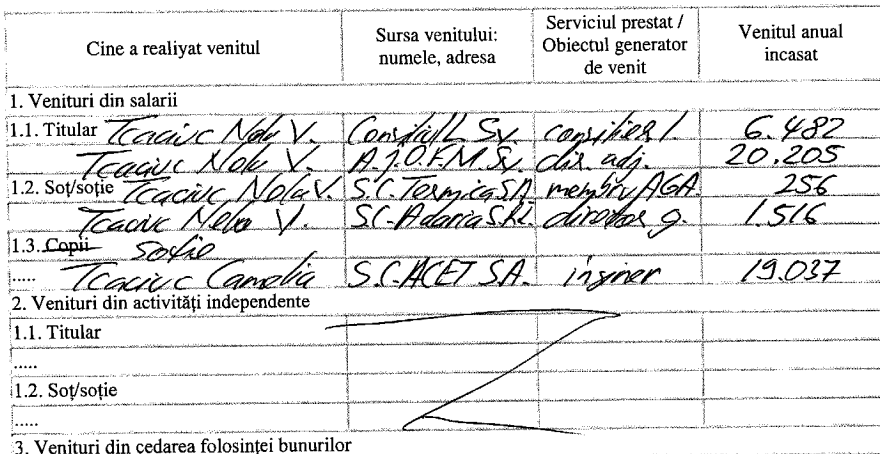 Cine a realiyat venitul | Sursa venitului: numele, adresa | Serviciul prestat / Obiectul generator de venit | Venitul anual incasat
1. Venituri din salarii
1.1. Titular Tcaciuc Nelu V. | Consiliul L Sv. | consilier l | 6.482
Tcaciuc Nelu V. | A.J.O.F.M. Sv. | dir. adj. | 20.205
1.2. Soț/soție Tcaciuc Nelu V. | S.C. Termica SA | membru AGA | 256
Tcaciuc Nelu V. | S.C. Adaria SRL | director g. | 1.516
1.3. Copii soție
..... Tcaciuc Camelia | S.C. ACET SA. | inginer | 19.037
2. Venituri din activități independente
1.1. Titular
.....
1.2. Soț/soție
.....
3. Venituri din cedarea folosinței bunurilor